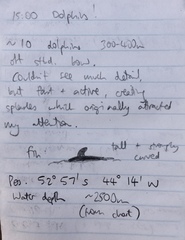 15.00 Dolphins!
~10 dolphins 300-400m
off stbd. bow.
Couldn't see much detail,
but fast + active, creating
splashes which originally attracted
my attention.
fin: tall + curved
Pos. 52° 57's 44° 14' W
Water depth ~2500m
(from chart)